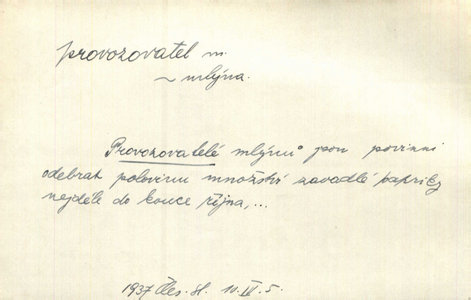 provozovatel m.
~ mlýna.
Provozovatelé mlýnů jsou povinni
odebrat polovinu množství zavadlé papriky
nejdéle do konce října,...
1937 Čes. sl. 10.IX.5.